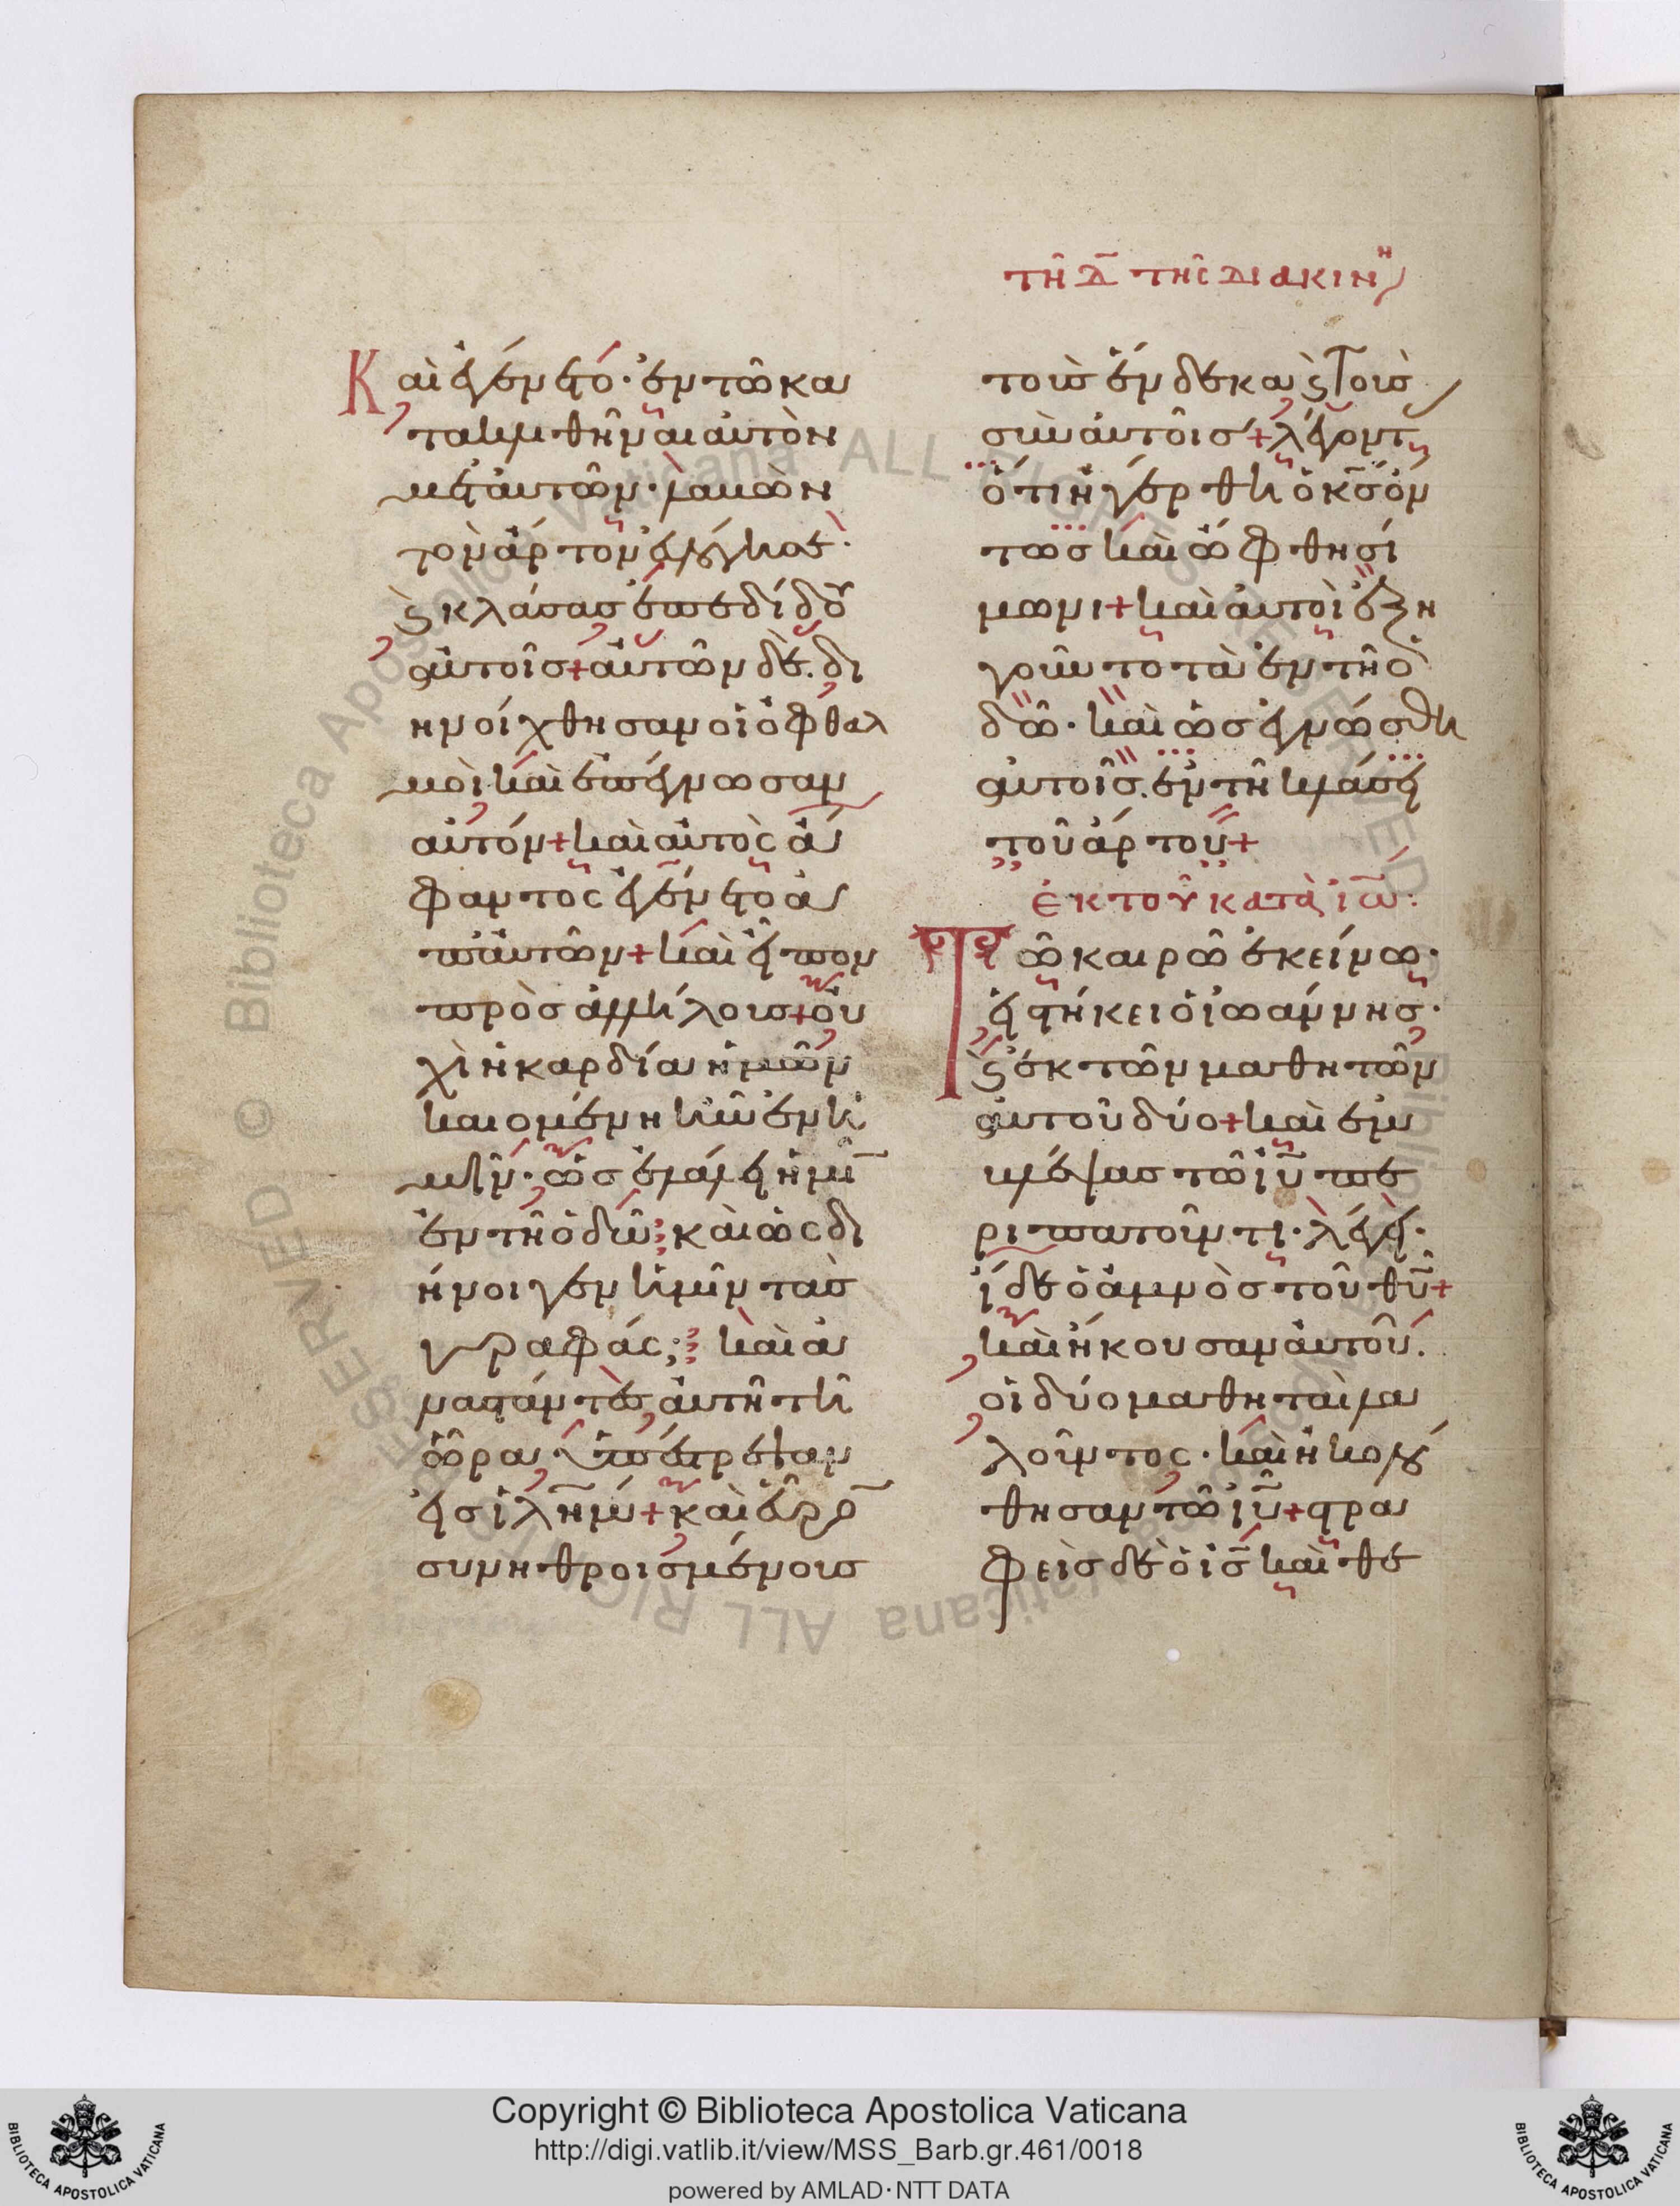 τῆ Δ̅ τῆς διακινη
Καὶ ἐγένετο· ἐν τῶ κα
τακλιθῆναι αὐτὸν
μετ' αὐτῶν· λαβὼν
τὸν ἄρτον εὐλόγησε·
ϗ κλάσας ἐπεδίδου
αὐτοῖς+ αὐτῶν δὲ. δι
ηνοίχθησαν οἱ ὀφθαλ
μοὶ καὶ ἐπέγνωσαν
αὐτόν+ καὶ αὐτὸς ἄ
φαντος ἐγένετο ἀ
π' αὐτῶν+ καὶ εἶπον
πρὸς ἀλλήλους+ οὐ
χὶ ἡ καρδία ἡμῶν
καιομένη ἦν ἐν ἡ
μῖν· ὡς ἐλάλει ἡμῖ
ἐν τῆ ὁδῶ· καὶ ὡς δι
ήνοιγεν ἡμῖν τὰς
γραφάς; καὶ ἀ
ναστάντες αὐτῆ τῆ
ὥρα ὑπέστρεψαν
εἰς ἱλῆμ+ καὶ εὗρο
συνηθροισμένους
τοὺς ἕνδεκα ϗ τοὺς
σὺν αὐτοῖς+ λέγοντ
ὅτι ἠγέρθη ὁ κ̅σ ὄν
τως καὶ ὤφθη σί
μωνι+ καὶ αὐτοὶ ἐξη
γοῦντο τὰ ἐν τῆ ὁ
δῶ· καὶ ὡς ἐγνώσθη
αὐτοῖς. ἐν τῆ κλάσει
τοῦ ἄρτου+
ἐκ τοῦ κατὰ ἰω̅:
Τῶ καιρῶ ἐκείνω·
εἱστήκει ὁ ἰωάννης·
ϗ ἐκ τῶν μαθητῶν
αὐτοῦ δύο+ καὶ ἐμ
βλέψας τῶ ἰ̅υ πε
ριπατοῦντι· λέγει·
ἴδε ὁ ἀμνὸς τοῦ θ̅υ+
καὶ ἤκουσαν αὐτοῦ.
οἱ δύο μαθηταὶ λα
λοῦντος· καὶ ἠκολού
θησαν τῶ ἰ̅υ+ στρα
φεὶς δὲ ὁ ἰ̅σ καὶ θε
Copyright © Biblioteca Apostolica Vaticana
http://digi.vatlib.it/view/MSS_Barb.gr.461/0018
powered by AMLAD·NTT DATA